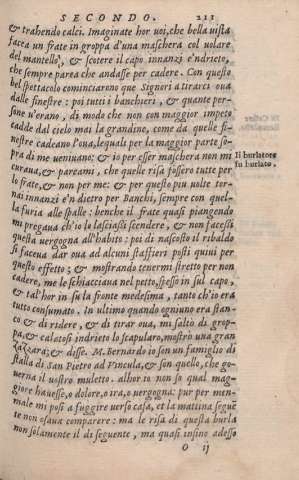 SECONDO. 211
& trahendo calci. Imaginate hor uoi, che bella uista
facea un frate in groppa d'una maschera col uolare
del mantello, & scotere il capo innanzi e'ndrieto,
che sempre parea che andasse per cadere. Con questo
bel spettacolo cominciarono que Signori a tirarci oua
dalle finestre: poi tutti i banchieri, & quante per-
sone u'erano, di modo che non con maggior impeto
cadde dal cielo mai la grandine, come da quelle fi-
nestre cadeano l'oua, lequali per la maggior parte so-
pra di me ueniuano: & io per esser maschera non mi
Il burlatore
curaua, & pareami, che quelle risa fossero tutte per
fu burlato.
lo frate, & non per me: & per questo piu uolte tor-
nai innanzi e'n dietro per Banchi, sempre con quel-
la furia alle spalle: benche il frate quasi piangendo
mi pregaua ch'io lo lasciassi scendere, & non facessi
questa uergogna all'habito: poi di nascosto il ribaldo
si facea dar oua ad alcuni staffieri posti quiui per
questo effetto; & mostrando tenermi stretto per non
cadere, me le schiacciaua nel petto, spesso in sul capo,
& tal'hor in su la fronte medesima, tanto ch'io era
tutto consumato. In ultimo quando ogniuno era stan-
co & di ridere, & di tirar oua, mi saltò di grop-
pa, & calatosi indrieto lo scapularo, mostrò una gran
zazzara; & disse. M. Bernardo io son un famiglio di
stalla di San Pietro ad Vincula, & son quello, che go-
uerna il uostro muletto. allhor io non so qual mag-
giore hauesse, o dolore, o ira, o uergogna: pur per men-
male mi posi a fuggire uerso casa, et la mattina seguẽ
te non osaua comparere: ma le risa di questa burla
non solamente il dì seguente, ma quasi insino adesso
O ij